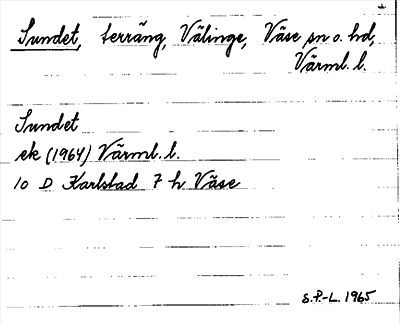 Sundet, terräng, Välinge, Väse sn o. hd,
Värml. l.
Sundet
ek (1964) Värml. l.
10 D Karlstad 7 h Väse
S.P.-L. 1965